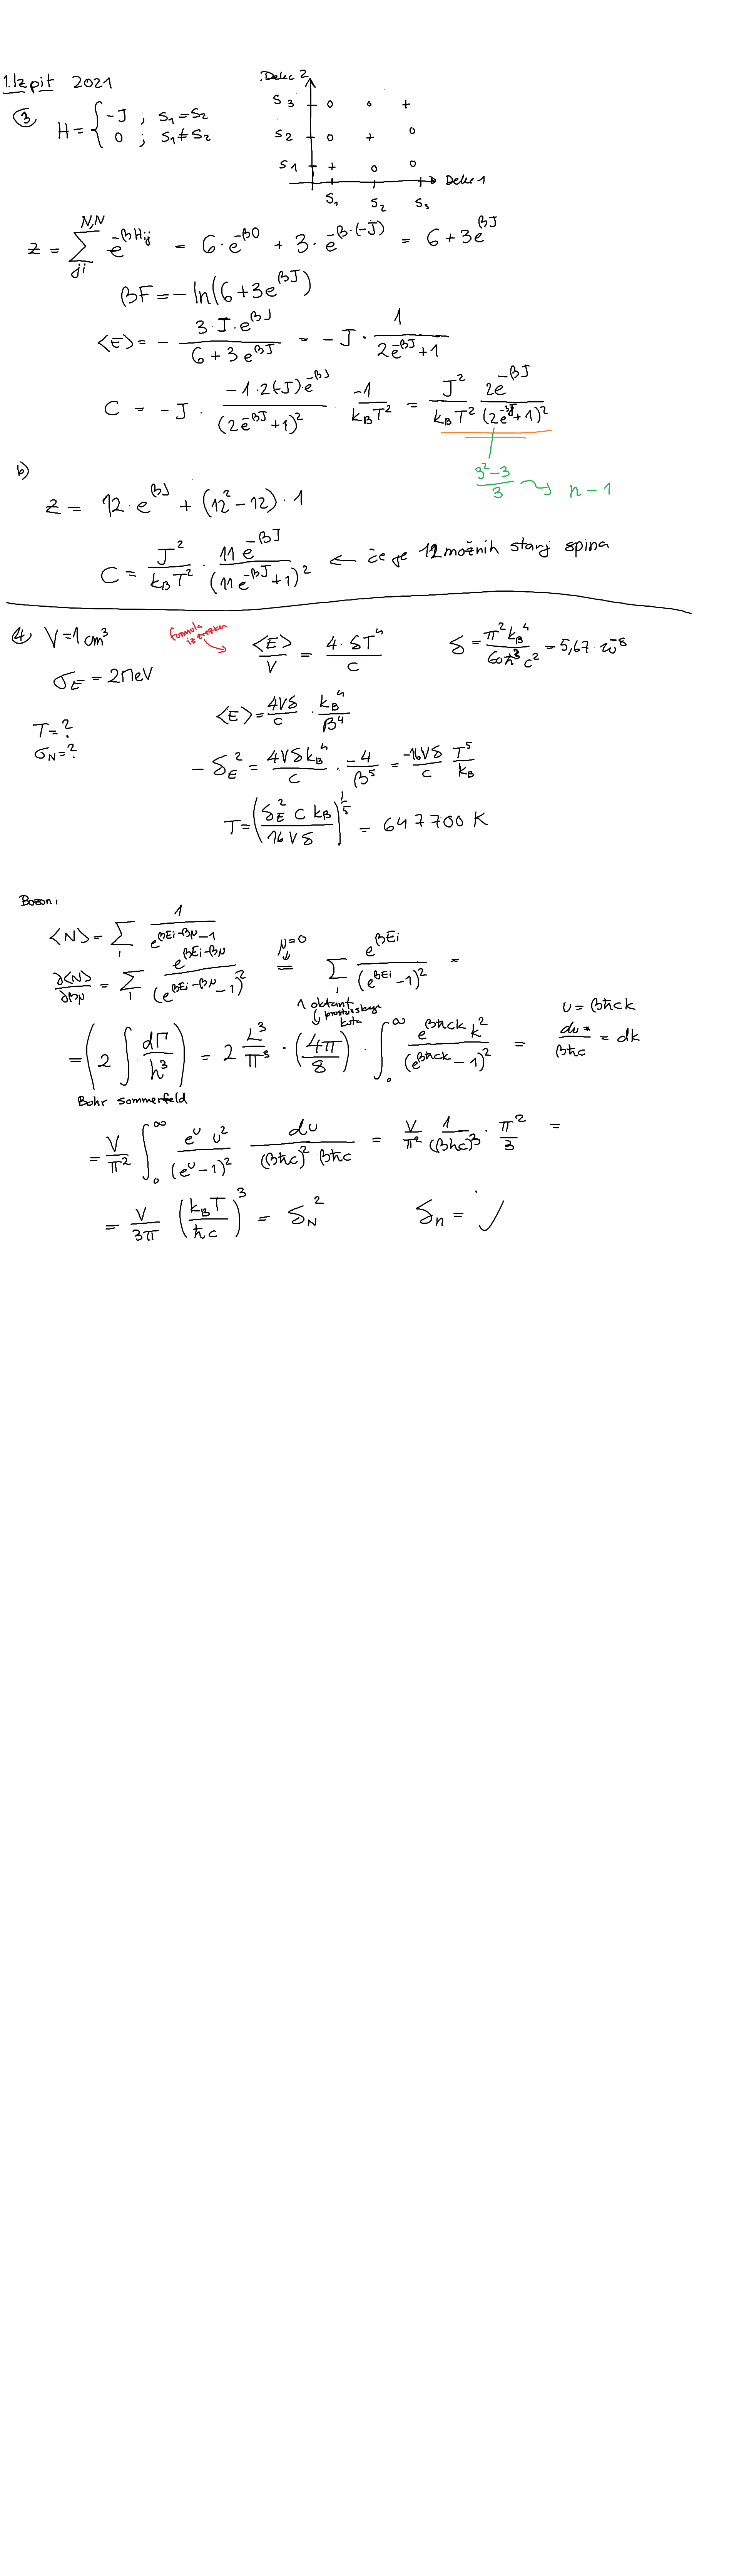 1. Izpit 2021
③ H = { -J ; S₁ = S₂
0 ; S₁ ≠ S₂
Delec 2
S3 o o +
S2 o + o
S1 + o o
Delec 1
S₁ S₂ S₃
Z = ∑_{ji}^{N,N} e^{-βHij} = 6·e^{-β0} + 3·e^{-β·(-J)} = 6 + 3e^{βJ}
βF = -ln(6+3e^{βJ})
⟨E⟩ = - (3·J·e^{βJ})/(6+3e^{βJ}) = -J · 1/(2e^{-βJ}+1)
C = -J · (-1·2(-J)·e^{-βJ})/(2e^{-βJ}+1)² · -1/(k_B T²) = J²/(k_B T²) 2e^{-βJ}/(2e^{-βJ}+1)²
(3²-3)/3 → n-1
b)
Z = 12·e^{βJ} + (12²-12)·1
C = J²/(k_B T²) · 11e^{-βJ}/(11e^{-βJ}+1)² ← če je 12 možnih stanj spina
④ V = 1 cm³
formula
⟨E⟩/V = 4·δT⁴/c
δ = π²k_B⁴/(60ħ³c²) = 5,67·10⁻⁸
σ_E = 2 MeV
T = ?
σ_N = ?
⟨E⟩ = 4Vδ/c · k_B⁴/β⁴
-δ_E² = 4Vδk_B⁴/c · -4/β⁵ = -16Vδ/c T⁵/k_B
T = (δ_E² c k_B/16Vδ)^{1/5} = 647700 K
Bozoni:
⟨N⟩ = ∑_i 1/(e^{βEi-βμ}-1)
∂⟨N⟩/∂βμ = ∑_i e^{βEi-βμ}/(e^{βEi-βμ}-1)² = ∑_i e^{βEi}/(e^{βEi}-1)² =
μ=0
1 oktant
prostorskega
kota
= (2∫dΓ/h³) = 2 L³/π³ · (4π/8) · ∫₀^∞ e^{βħck}k²/(e^{βħck}-1)² =
u = βħck
du/βħc = dk
Bohr sommerfeld
= V/π² ∫₀^∞ e^u u²/(e^u-1)² du/((βħc)² βħc) = V/π² 1/(βħc)³ · π²/3 =
= V/3π (k_B T/ħc)³ = δ_N²
δn = √